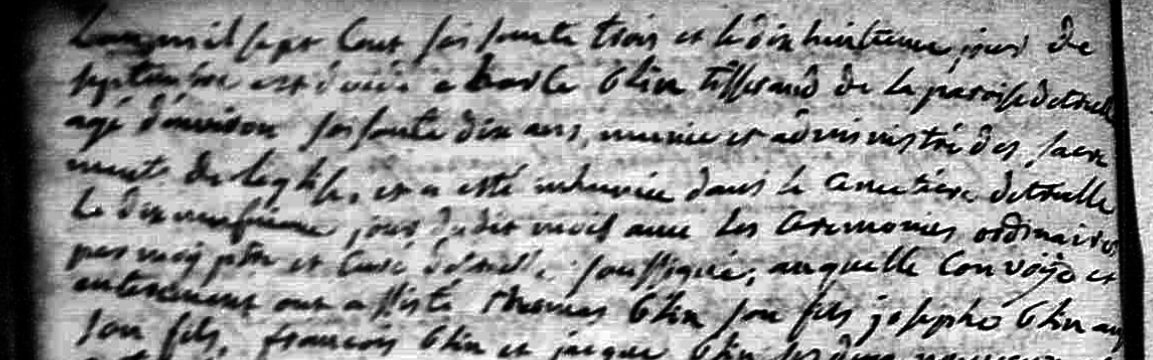 Lan mil sept Cent soissente trois et le dix huistieme jour de
septembre est decede basile Glin tisserand de la paroise
agé denviron soisente dix ans, munie et administré des sacre
ments de leglise, et a esté inhumée dans le Cimetiere
le dix neufvieme jour dudit mois avec les Ceremonies ordinaires
par moy pbre et Curé soussigné, auquelle Convoÿe et
enterement ont assisté thomas Glin son fils josephe Glin au
son fils, francois Glin et jacque Glin ses deux